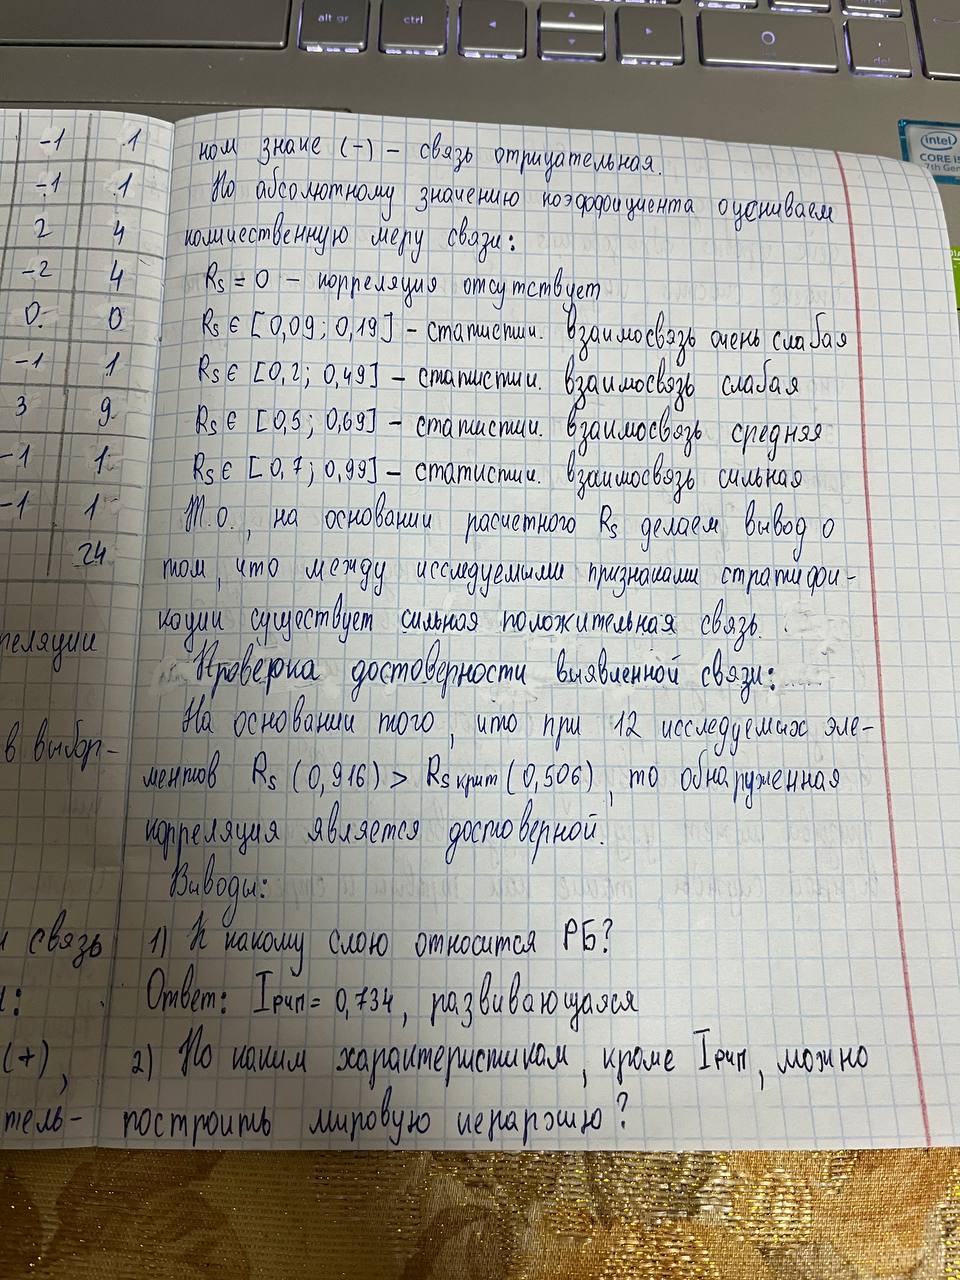 alt gr
ctrl
del
intel
CORE i5
7th Gen
-1 1
-1 1
2 4
-2 4
0 0
-1 1
3 9
-1 1
-1 1
24
реляции
в выбор-
связь
(+),
тель-
ном знаке (-) – связь отрицательная.
По абсолютному значению коэффициента оцениваем
количественную меру связи:
Rs = 0 – корреляция отсутствует
Rs ∈ [0,09; 0,19] – статистич. взаимосвязь очень слабая
Rs ∈ [0,2; 0,49] – статистич. взаимосвязь слабая
Rs ∈ [0,5; 0,69] – статистич. взаимосвязь средняя
Rs ∈ [0,7; 0,99] – статистич. взаимосвязь сильная
Т.о., на основании расчетного Rs делаем вывод о
том, что между исследуемыми признаками стратифи-
кации существует сильная положительная связь.
Проверка достоверности выявленной связи:
На основании того, что при 12 исследуемых эле-
ментов Rs (0,916) > Rs крит (0,506), то обнаруженная
корреляция является достоверной.
Выводы:
1) К какому слою относится РБ?
Ответ: Iрчп = 0,734, развивающаяся
2) По каким характеристикам, кроме Iрчп, можно
построить мировую иерархию?